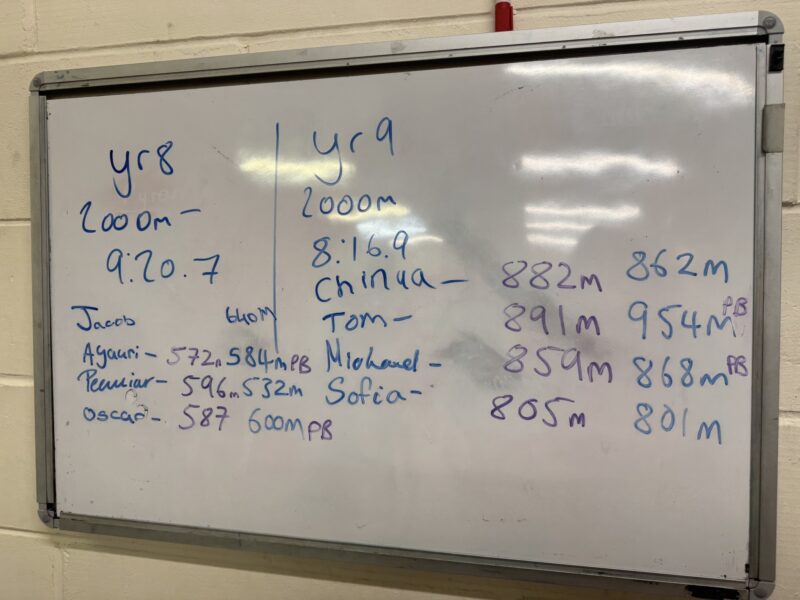 yr8
2000m -
9:20.7
Jacob 640M
Ayauri - 572m 584m PB
Pecuiiar - 596m 532m
Oscar - 587 600m PB
yr 9
2000m
8:16.9
Chinua - 882m 862m
Tom - 891m 954m PB
Michael - 859m 868m PB
Sofia - 805m 801m